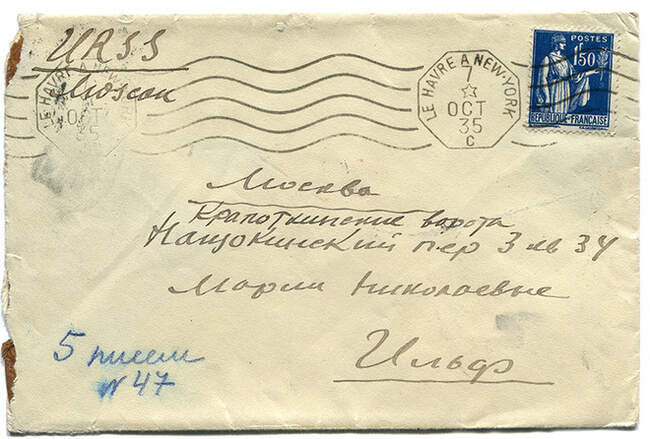 URSS
Moscou
LE HAVRE A NEW-YORK
OCT
35
LE HAVRE A NEW-YORK
7
OCT
35
C
POSTES
1F50
REPUBLIQUE FRANÇAISE
Москва
Кропоткинские ворота
Нащокинский пер 3 кв 34
Марии Николаевне
Ильф
5 писем
N 47